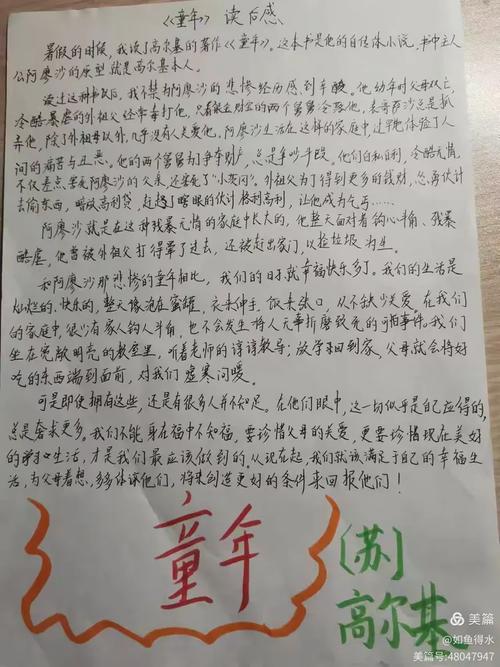 《童年》 读后感
暑假的时候,我读了高尔基的著作《童年》。这本书是他的自传体小说,书中主人
公阿廖沙的原型就是高尔基本人。
读过这种书以后,我深深为阿廖沙的悲惨经历感到辛酸。他幼年时父母双亡,
冷酷暴虐的外祖父经常毒打他,只看重金财宝的两个舅舅冷落他,表哥萨沙总是捉
弄他,除了外祖母以外,几乎没有人关爱他。阿廖沙生活在这样的家庭中过早地体验了人
间的痛苦与丑恶。他的两个舅舅为争夺财产,总是争吵斗殴。他们自私自利,冷酷无情,
不仅差点害死阿廖沙的父亲,还害死了“小茨冈”。外祖父为了得到更多的钱财,怂恿伙计
去偷东西,暗放高利贷,赶走了瞎眼的伙计格利高利,让他成为乞丐……
阿廖沙就是在这种残暴无情的家庭中长大的,他整天面对着钩心斗角、残暴
酷虐,他曾被外祖父打得晕了过去,还被赶出家门,以捡垃圾为生。
和阿廖沙那悲惨的童年相比,我们的日子就幸福快乐多了。我们的生活是
灿烂的,快乐的,整天像泡在蜜罐,衣来伸手,饭来张口,从不缺少关爱。在我们
的家庭中,很少有家人钩人斗角,也不会发生将人元害折磨致死的可怕事件。我们
坐在宽敞明亮的教室里,听着老师的谆谆教导;放学来回到家,父母就会将好
吃的东西端到面前,对我们嘘寒问暖。
可是即使拥有这些,还是有很多人并不知足。在他们眼中,这一切似乎是自己应得的,
总是奢求更多。我们不能身在福中不知福,要珍惜父母的关爱,更要珍惜现在美好
的学习生活,才是我们最应该做到的。从现在起,我们就该满足于自己的幸福生
活,为父母着想,多多体谅他们,将来创造更好的条件来回报他们!
童年
[苏]
高尔基
美篇
@如鱼得水
美篇号:48047947